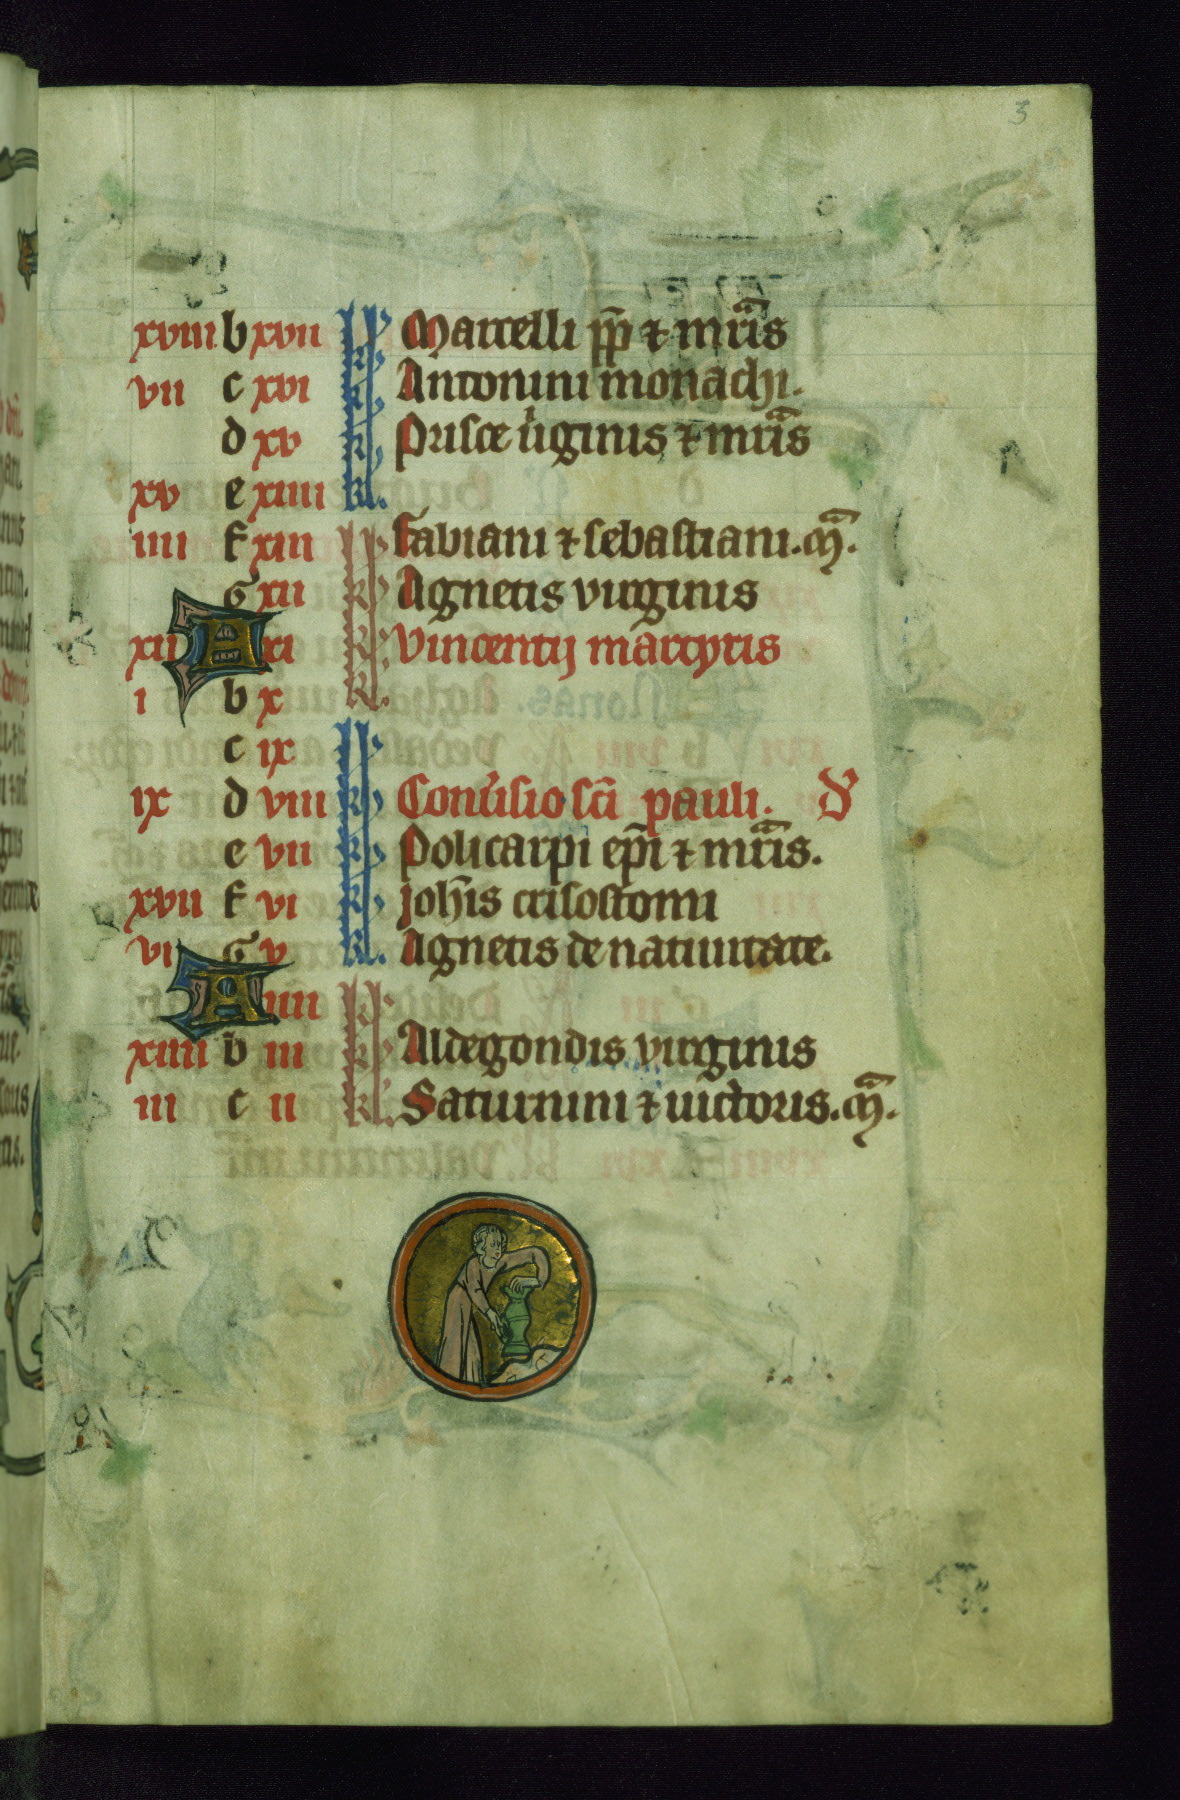 3
xviii b xvii kl Marcelli pp̄ ⁊ mr̄is
vii c xvi kl Antonini monachi.
d xv kl Prisce uĩginis ⁊ mr̄is
xv e xiiii kl.
iiii f xiii kl Fabiani ⁊ sebastiani. m̄.
G xii kl Agnetis virginis
xii A xi kl Vincentij martyris
i b x kl.
c ix kl
ix d viii kl Conu̾sio sc̄i pauli. D
e vii kl Policarpi ep̄i ⁊ mr̄is.
xvii f vi kl Joh̄is crisostomi
vi G v kl. Agnetis de natiuitate.
A iiii kl
xiiii b iii kl Aldegondis virginis
iii c ii kl. Saturnini ⁊ uictoris. m̄.